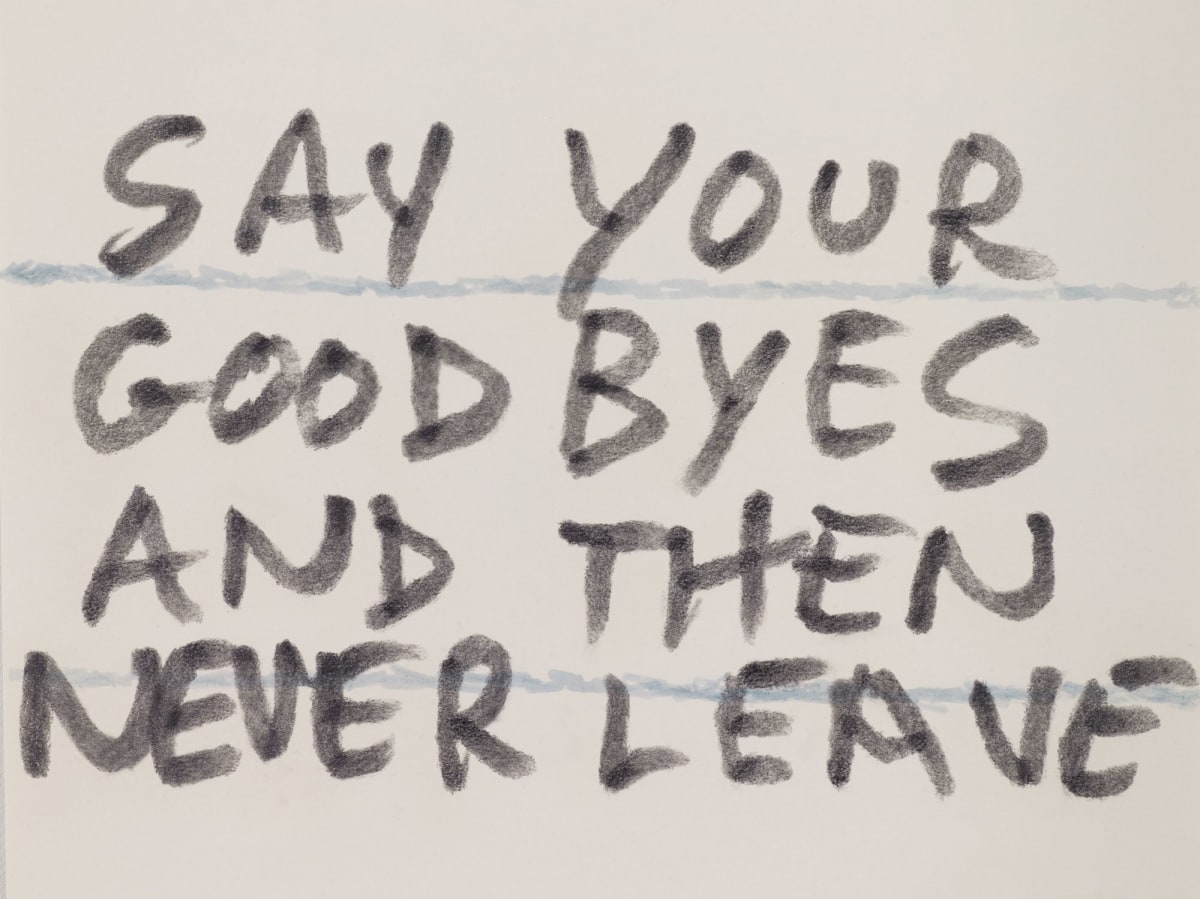 SAY YOUR
GOOD BYES
AND THEN
NEVER LEAVE